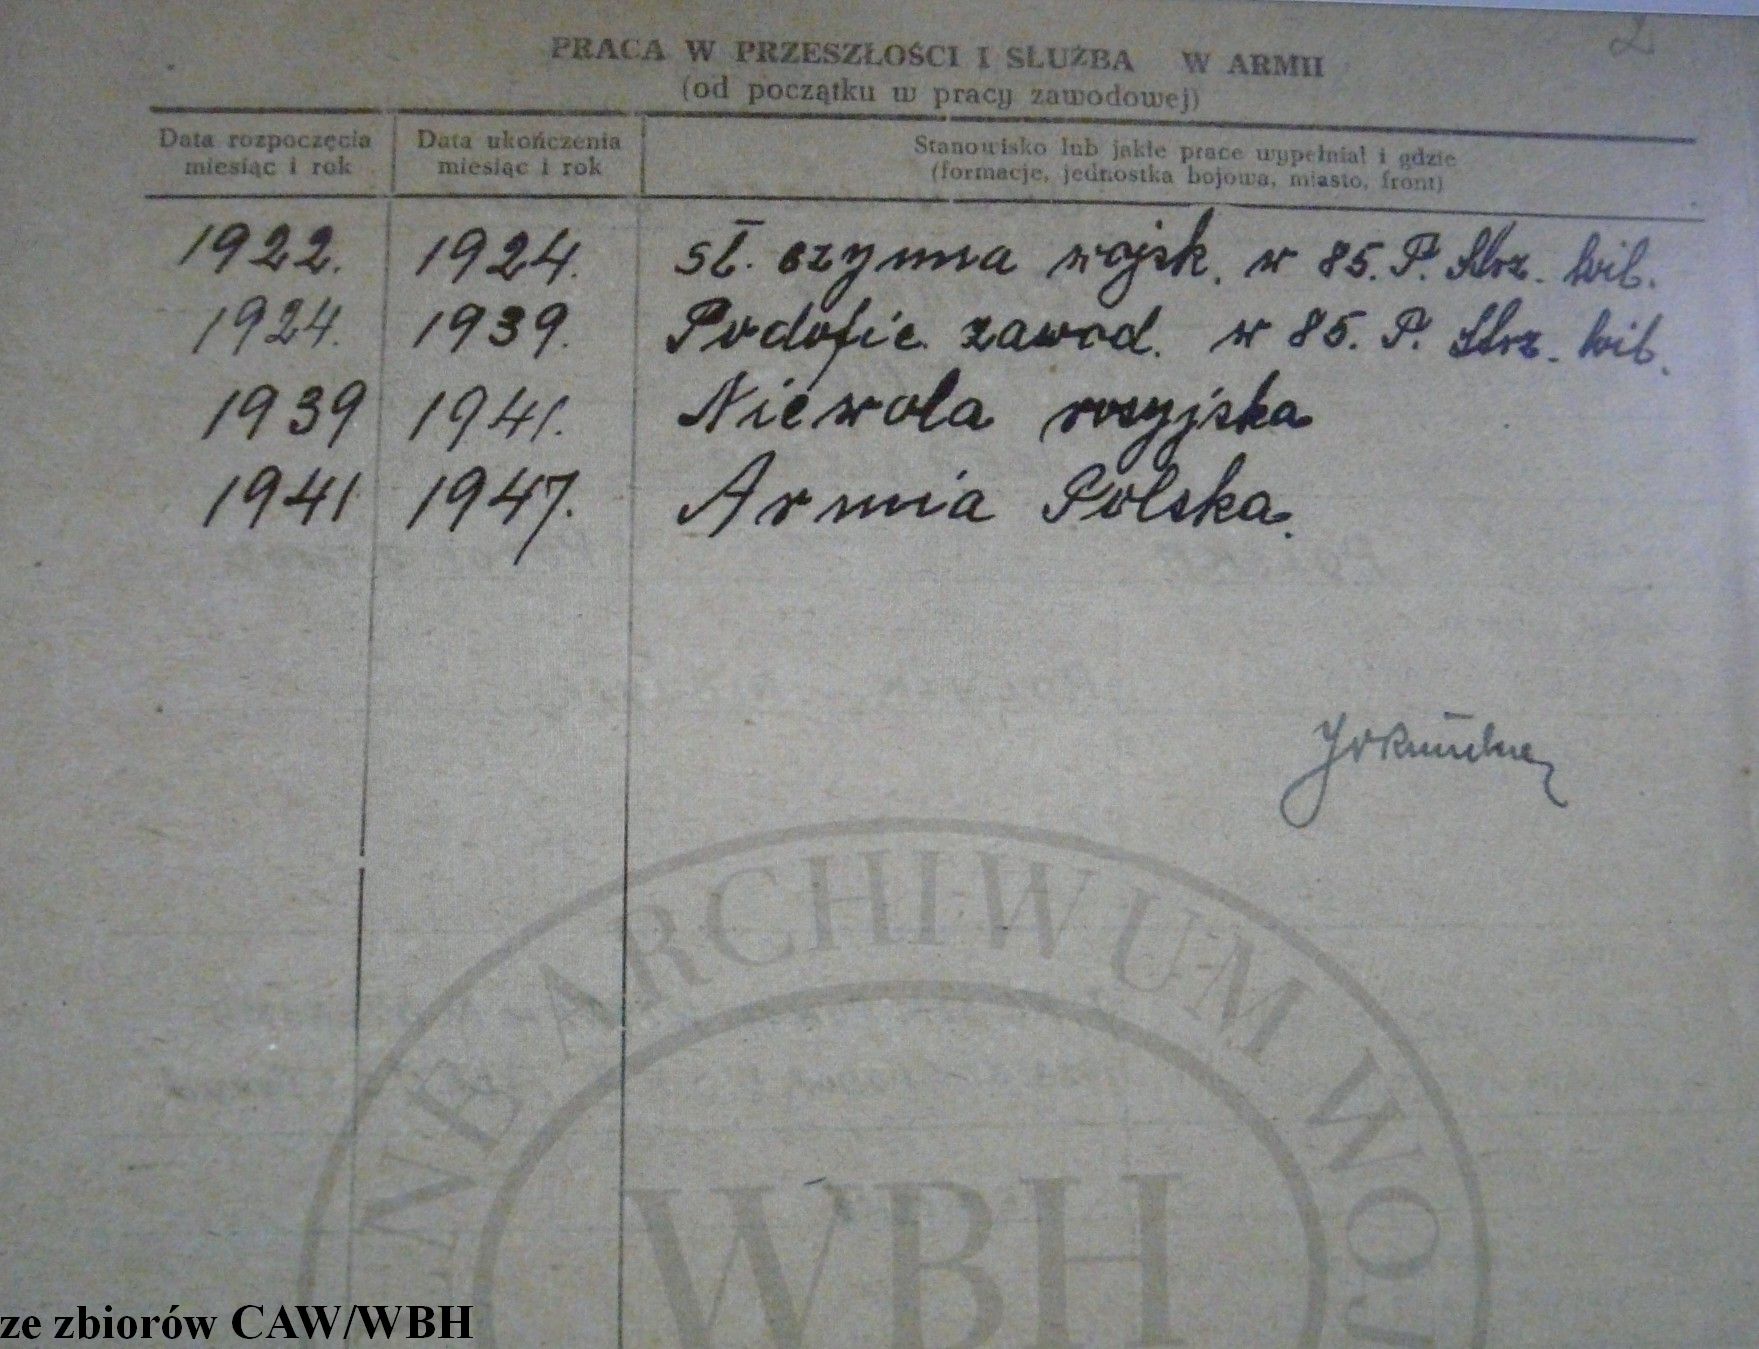 2
PRACA W PRZESZŁOŚCI I SŁUŻBA W ARMII
(od początku w pracy zawodowej)
Data rozpoczęcia miesiąc i rok
Data ukończenia miesiąc i rok
Stanowisko lub jakie prace wypełniał i gdzie
(formacje, jednostka bojowa, miasto, front)
1922. 1924. sł. czynna wojsk. w 85. P. Strz. Wil.
1924. 1939. Podofic. zawod. w 85. P. Strz. Wil.
1939 1941. Niewola rosyjska
1941 1947. Armia Polska.
LNE ARCHIWUM WOJ
WBH
ze zbiorów CAW/WBH